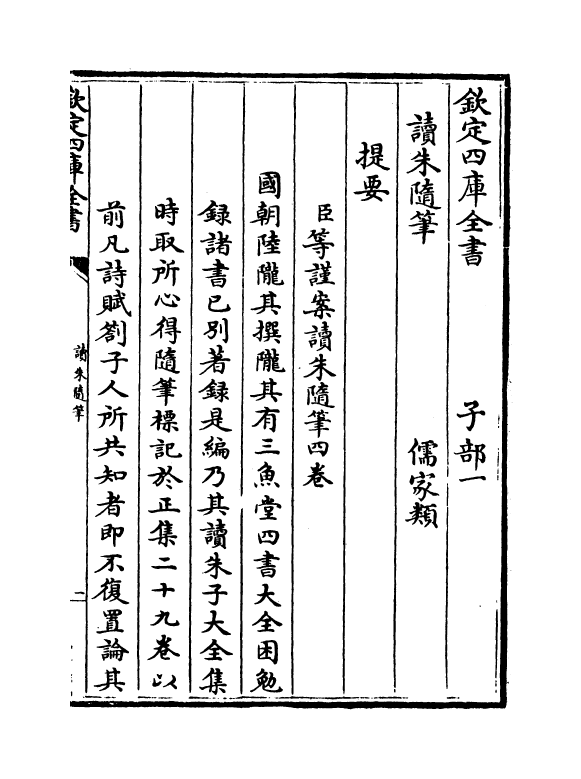 欽定四庫全書　子部一
讀朱隨筆　儒家類
提要
臣等謹案讀朱隨筆四卷
國朝陸隴其撰隴其有三魚堂四書大全困勉
録諸書已別著録是編乃其讀朱子大全集
時取所心得隨筆標記於正集二十九卷以
前凡詩賦劄子人所共知者即不復置論其
欽定四庫全書
讀朱隨筆